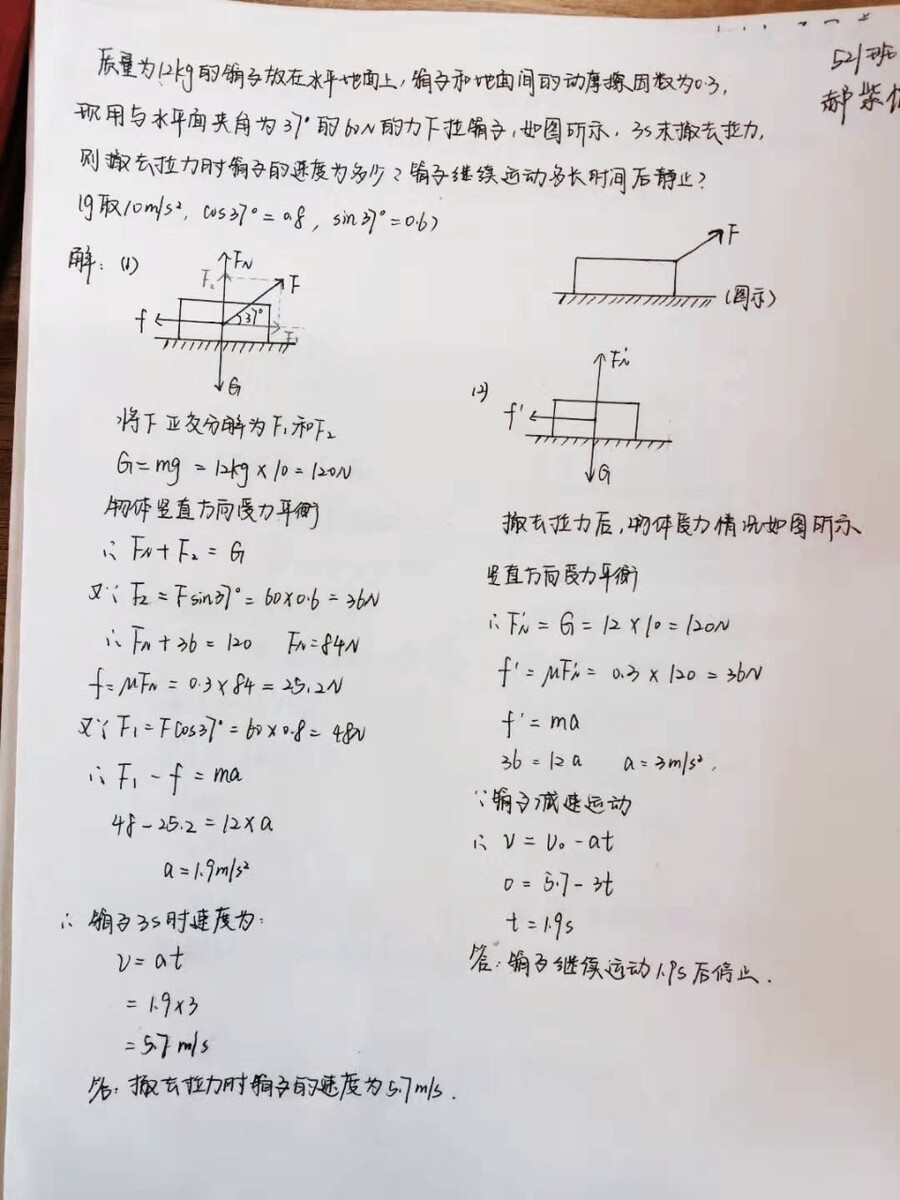 521班
郝紫
质量为12kg的箱子放在水平地面上,箱子和地面间的动摩擦因数为0.3,
现用与水平面夹角为37°的60N的力F拉箱子,如图所示,3s末撤去拉力,
则撤去拉力时箱子的速度为多少?箱子继续运动多长时间后静止?
(g取10m/s², cos37°=0.8, sin37°=0.6)
F
(图示)
解: (1)
FN
F₂
F
f
37°
F₁
G
将F正交分解为F₁和F₂
G=mg=12kg×10=120N
物体竖直方向受力平衡
∴ FN+F₂=G
又∵ F₂=Fsin37°=60×0.6=36N
∴ FN+36=120 FN=84N
f=μFN=0.3×84=25.2N
又∵ F₁=Fcos37°=60×0.8=48N
∴ F₁-f=ma
48-25.2=12×a
a=1.9m/s²
∴ 箱子3s时速度为:
v=at
=1.9×3
=5.7m/s
答:撤去拉力时箱子的速度为5.7m/s.
(2)
FN'
f'
G
撤去拉力后,物体受力情况如图所示
竖直方向受力平衡
∴ FN'=G=12×10=120N
f'=μFN'=0.3×120=36N
f'=ma
36=12a a=3m/s².
∵箱子减速运动
∴ v=v₀-at
0=5.7-3t
t=1.9s
答:箱子继续运动1.9s后停止.